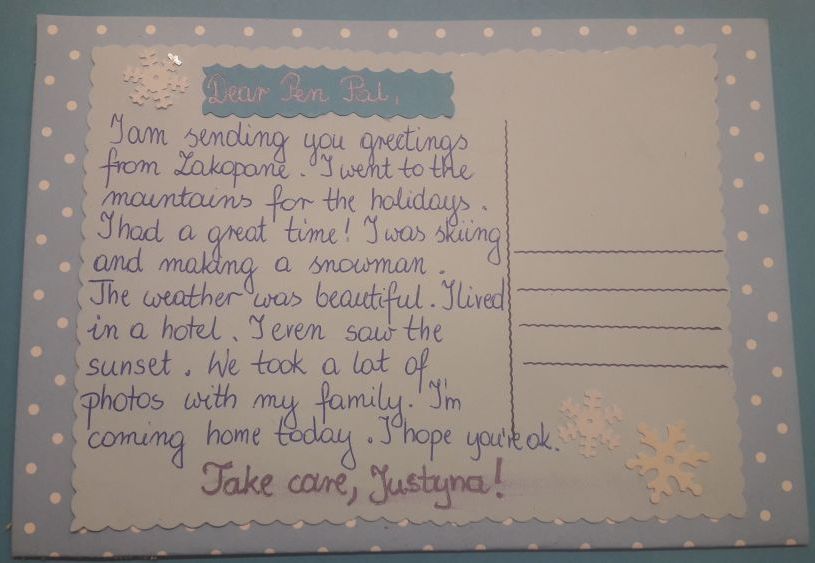 Dear Pen Pal,
I am sending you greetings
from Zakopane. I went to the
mountains for the holidays.
I had a great time! I was skiing
and making a snowman.
The weather was beautiful. I lived
in a hotel. I even saw the
sunset. We took a lot of
photos with my family. I'm
coming home today. I hope you're ok.
Take care, Justyna!